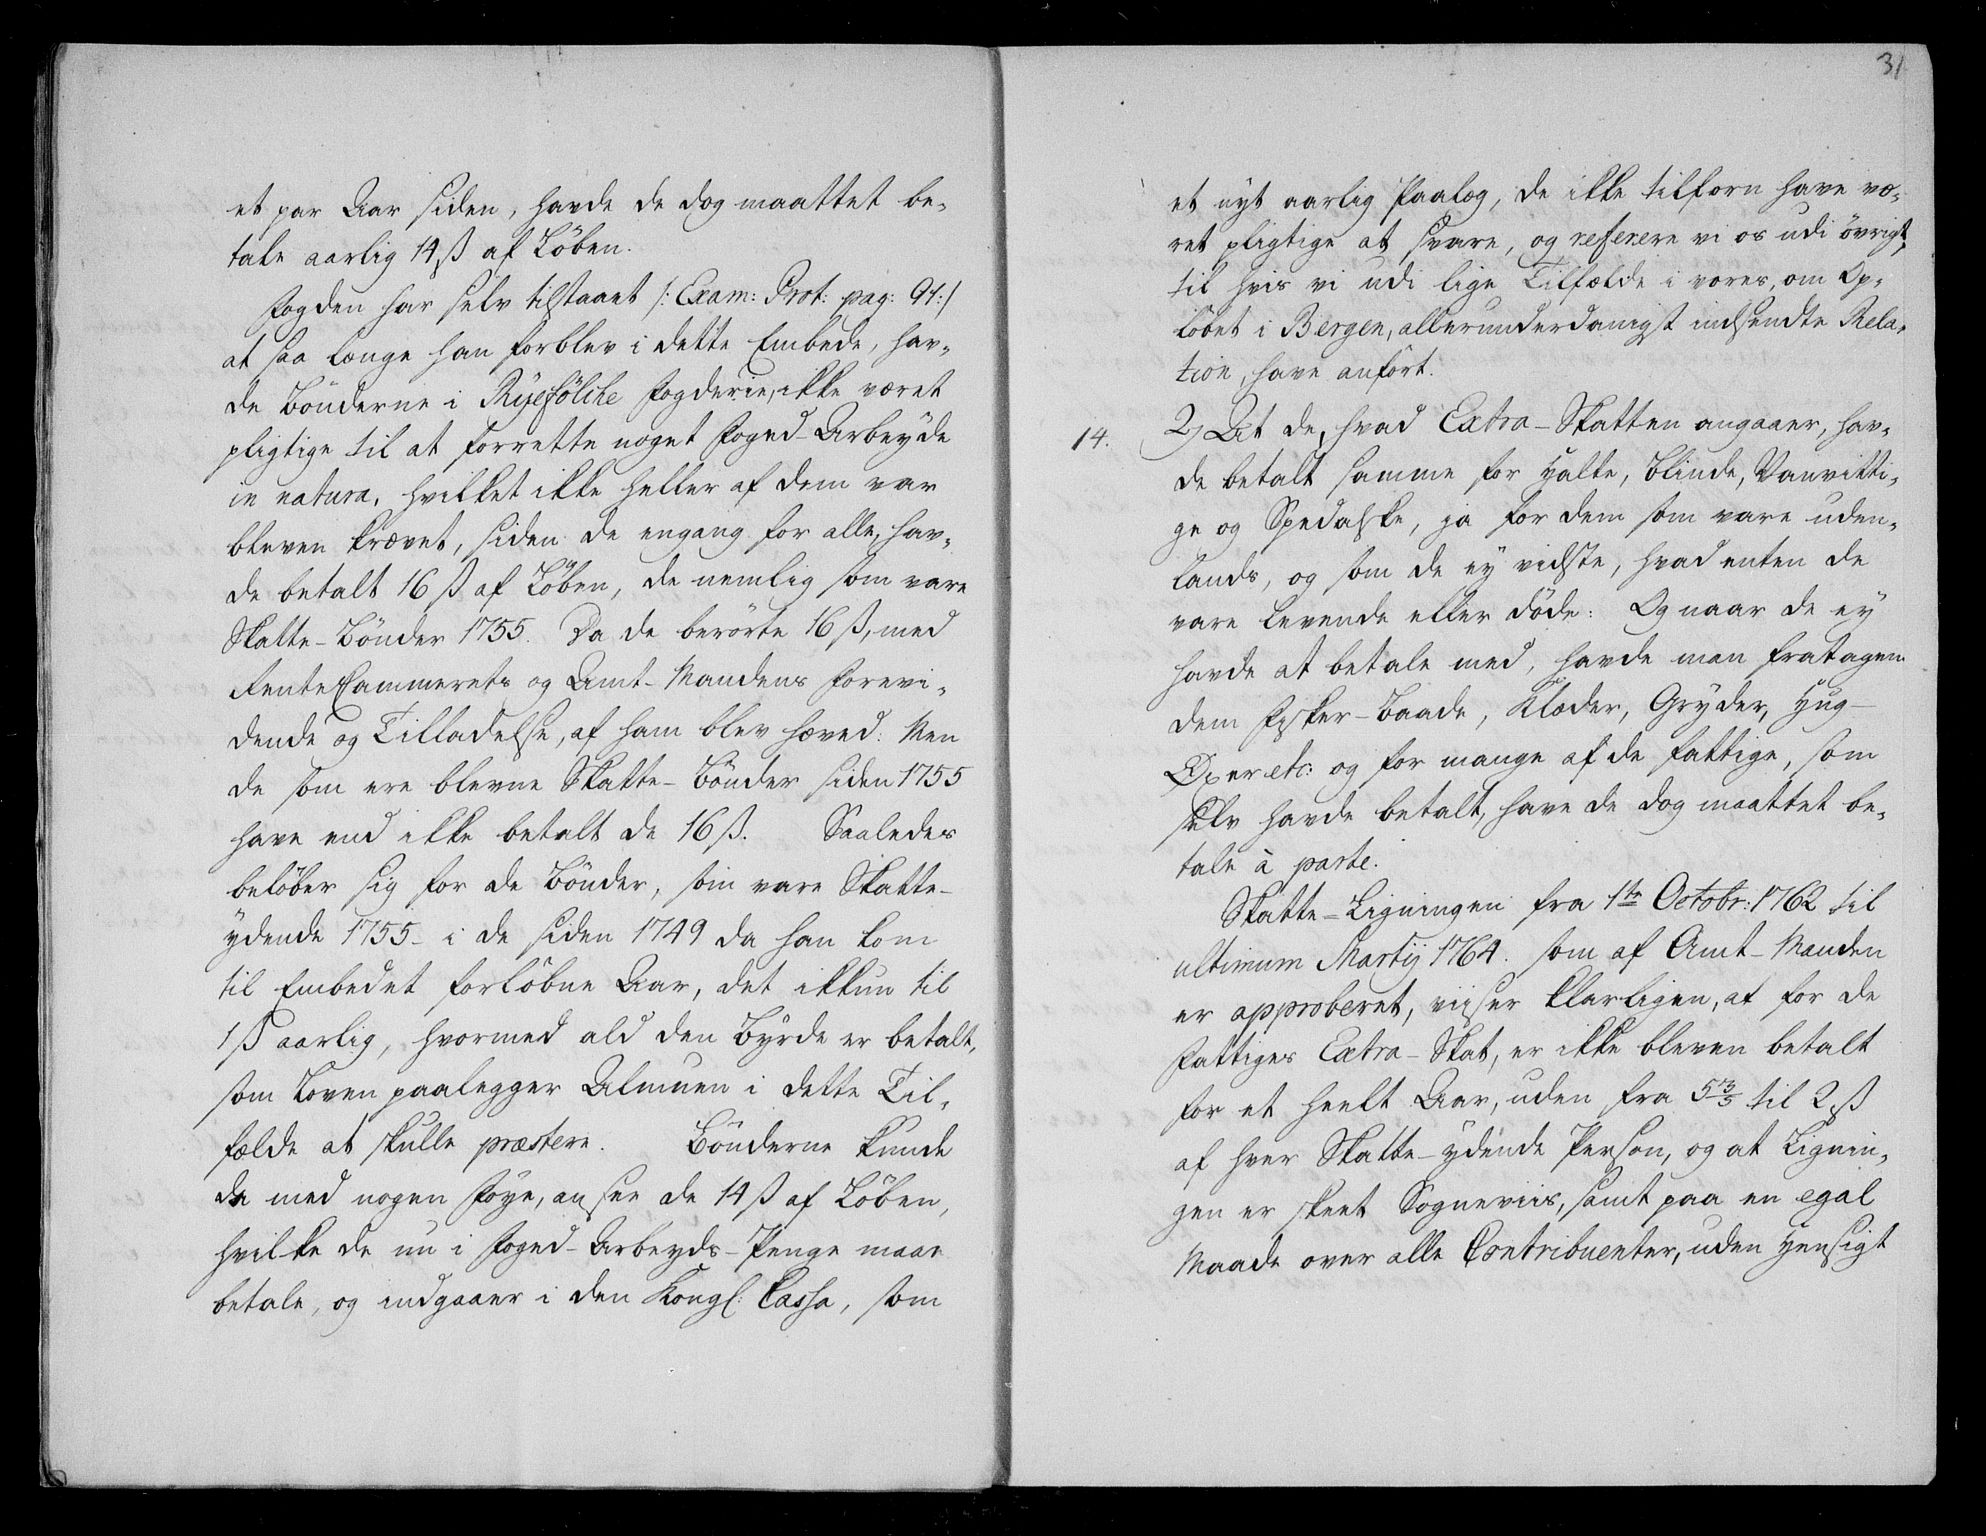 et par Aar siden, havde de dog maattet be-
tale aarlig 14 ß af Løben.
Fogden har selv tilstaaet /: Exam: Prot: pag: 91:/
at saa længe han forblev i dette Embede, hav-
de Bönderne i Ryefölche Fogderie, ikke været
pligtige til at forrette noget Foged-Arbeyde
in natura, hvilket ikke heller af dem var
bleven krævet, siden de engang for alle, hav-
de betalt 16 ß af Löben, de nemlig som vare
Skatte-Bönder 1755. Da de berörte 16 ß, med
RenteCammerets og Amt-Mandens Forevi-
dende og Tilladelse, af ham blev hæved. Men
de som ere blevne Skatte-Bönder siden 1755
have end ikke betalt de 16 ß. Saaledes
belöber sig for de Bönder, som vare Skatte-
ydende 1755- i de siden 1749 da han kom
til Embedet forløbne Aar, det ikkun til
1 ß aarlig, hvormed ald den Byrde er betalt,
som Loven paalegger Almuen i dette Til-
fælde at skulle præstere. Bönderne kunde
da med nogen Föye, ansee de 14 ß af Löben,
hvilke de nu i Foged-Arbeyds-Penge maae
betale, og indgaaer i den Kongl: Cassa, som
31
et nyt aarlig Paalæg, de ikke tilforn have væ-
ret pligtige at svare, og referere vi os udi övrigt,
til hvis vi udi lige Tilfælde i vores, om Op-
löbet i Bergen, allerunderdanigst indsendte Rela-
tion, have anfört.
14.
2) At de, hvad Extra-Skatten angaaer, hav-
de betalt samme for Halte, Blinde, Vanvitti-
ge og Spedalske, ja for dem som vare uden-
lands, og som de ey vidste, hvad enten de
vare levende eller döde: Og naar de ey
havde at betale med, havde man fratagen
dem Fisker-Baade, Klæder, Gryder, Hug-
Öxer etc: og for mange af de fattige, som
selv havde betalt, have de dog maattet be-
tale à parte.
Skatte-Ligningen fra 1te Octobr: 1762 til
ultimum Martij 1764. som af Amt-Manden
er approberet, viiser klarligen, at for de
Fattiges Extra-Skat, er ikke bleven betalt
for et heelt Aar, uden fra 5 3/5 til 2 ß
af hver Skatte-ydende Person, og at Lignin-
gen er skeet Sogneviis, samt paa en egal
Maade over alle Contribuenter, uden Hensigt